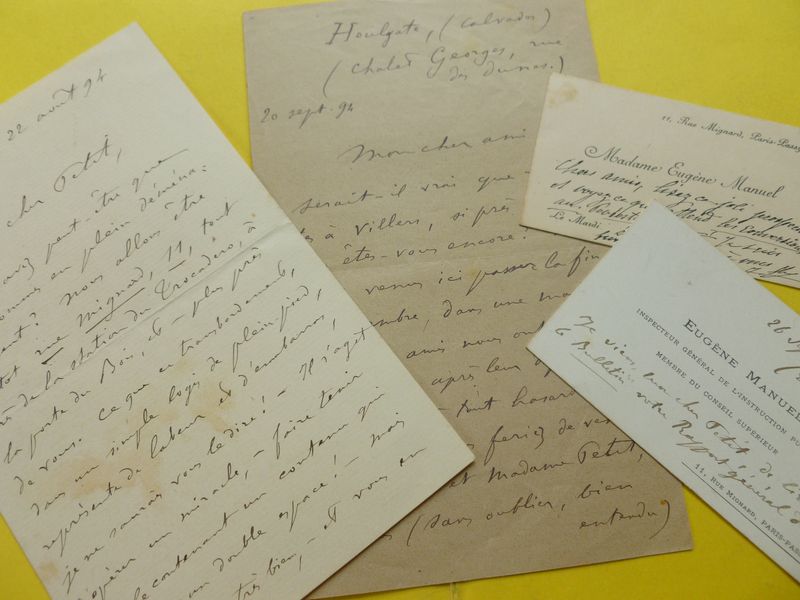 22 août 94
cher Petit,
savez peut-être que
sommes en plein déména-
ment? Nous allons être
tôt rue Mignard, 11, tout
près de la station du Trocadéro, à
la porte du Bois, et plus près
de vous. Ce que ce transbordement,
dans un simple logis de plain-pied,
représente de labeur et d'embarras,
je ne saurais vous le dire! – Il s'agit
d'opérer un miracle, – faire tenir
le contenant un contenu qui
un double espace! – Mais
très bien, – et vous en
Houlgate, (Calvados)
(Chalet Georges, rue
des dunes.)
20 sept. 94
Mon cher ami
Serait-il vrai que
à Villers, si près
êtes-vous encore?
venus ici passer la fin
septembre, dans une
amis nous ont
après leur
tout hasard
feriez de
et Madame Petit,
(sans oublier, bien
entendu)
11, Rue Mignard, Paris-Passy
Madame Eugène Manuel
Chers amis, lisez ce
et voyez ce
au
Le Mardi
26
Eugène Manuel
Inspecteur général de l'instruction pu
Membre du conseil supérieur
Je viens, mon cher Petit, de lire
le Bulletin votre Rapport général
11, Rue Mignard, Paris-Pas